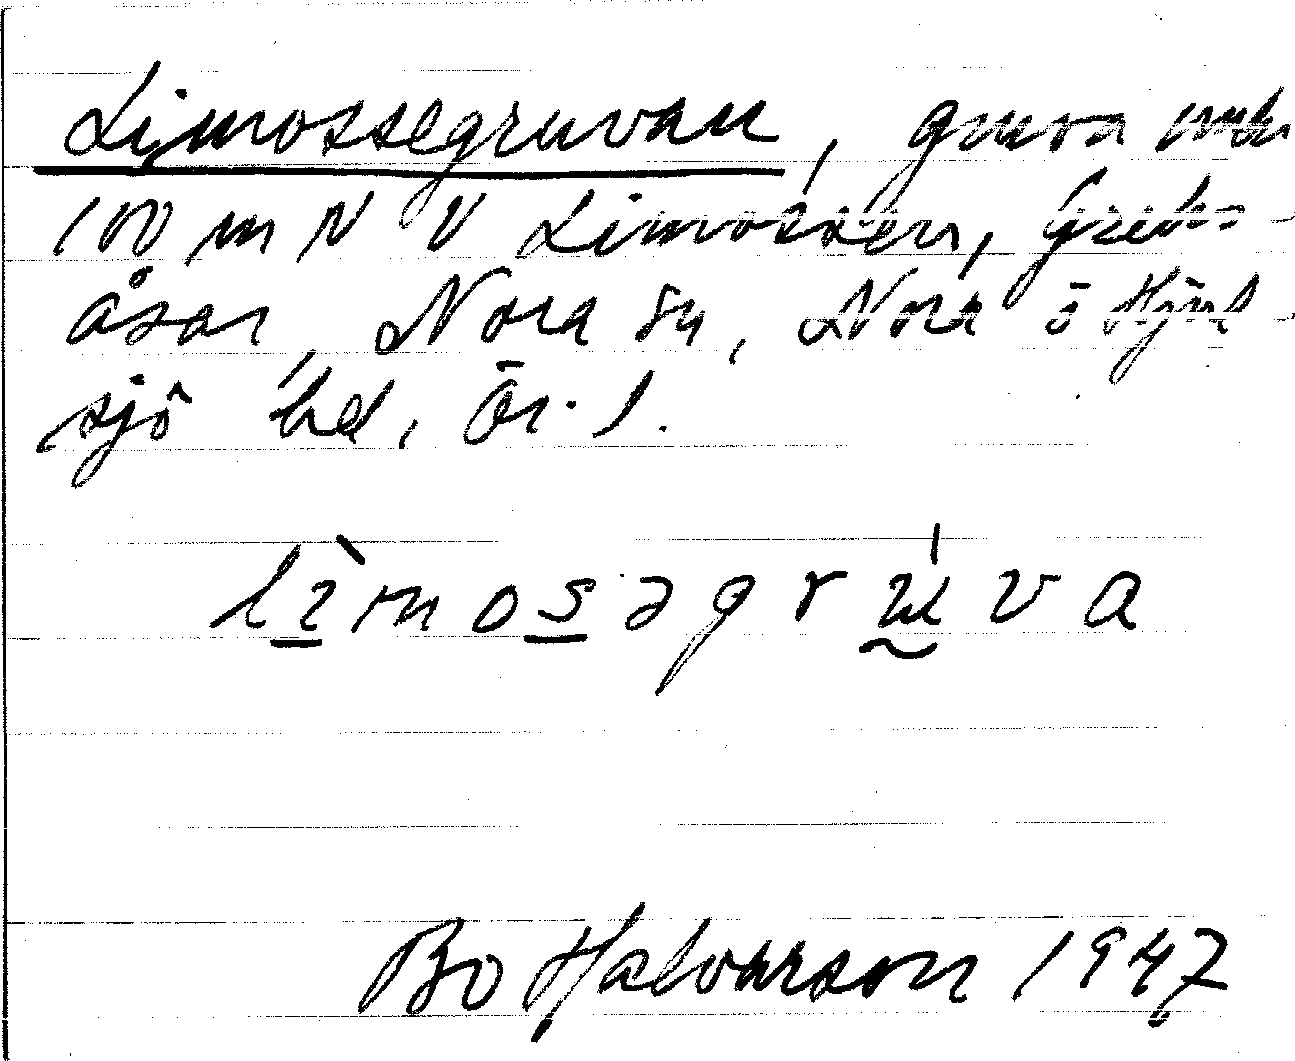 Limossegruvan, gruva omkr
100 m N V Limossen, Grecks-
åsar, Nora sn, Nora o Hjul-
sjö bd, Ör. l.
lìmosəgrúva
Bo Halvarson 1947